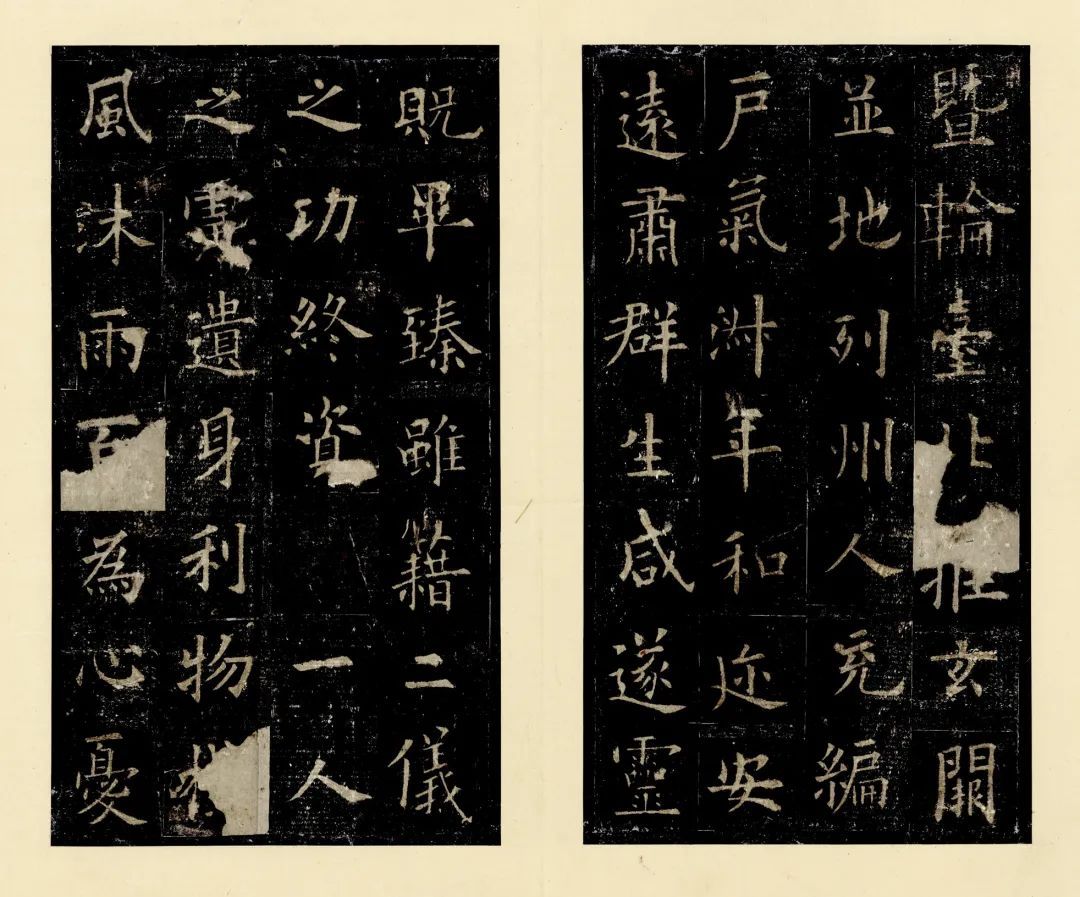 暨輪臺北拒玄闕
並地列州人充編
戶氣淑年和迩安
遠肅群生咸遂靈
貺畢臻雖藉二儀
之功終資一人
之慮遺身利物櫛
風沐雨百為心憂